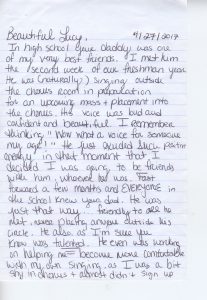 Beautiful Lucy, 4/27/2017
In high school your daddy was one
of my very best friends. I met him
the second week of our freshman year.
He was (naturally) singing outside
the chorus room in preparation
for an upcoming mass + placement into
the chorus. His voice was bold and
confident and beautiful. I remember
thinking "Wow what a voice for someone
my age!" He just exuded such positive
energy in that moment that I
decided I was going to be friends
with him, whoever he was. Fast
forward a few months and EVERYONE in
the school knew your dad. He was
just that way - friendly to all he
met, never placing anyone outside his
circle. He also as I'm sure you
know was talented. He even was working
on helping me become more comfortable
with my own singing, as I was a bit
shy in chorus + almost didn't sign up